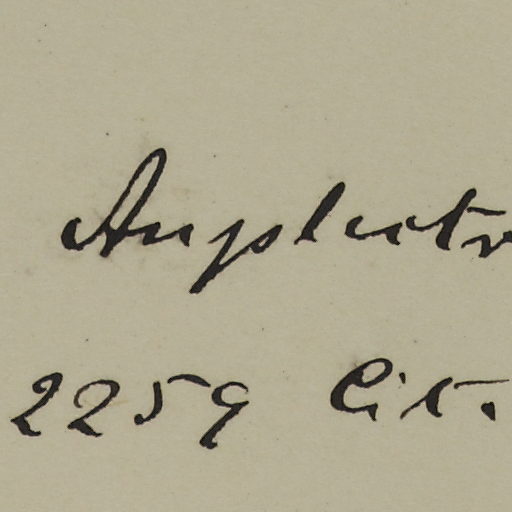 Anplectr
2259 Cit.